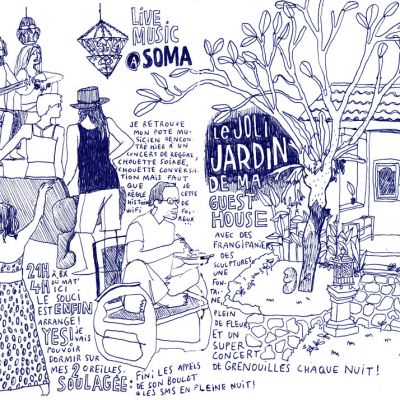 LIVE
MUSIC
@ SOMA
JE RETROUVE
MON POTE MU-
SICIEN RENCON-
TRÉ HIER À UN
CONCERT DE REGGAE,
CHOUETTE SOIRÉE,
CHOUETTE CONVERSA-
TION MAIS FAUT
QUE JE
RÈGLE CETTE
HISTOIRE DE
WIFI FOI-
REUX
21H À BX
4H DU MAT'
ICI
LE SOUCI
EST ENFIN
ARRANGÉ!
YES! JE
VAIS
POUVOIR
DORMIR SUR
MES 2 OREILLES.
SOULAGÉE:
FINI LES APPELS
DE SON BOULOT
& LES SMS EN PLEINE NUIT!
LE JOLI
JARDIN
DE MA
GUEST
HOUSE
AVEC DES
FRANGIPANIERS
DES
SCULPTURES
UNE
FON-
TAINE,
PLEIN
DE FLEURS
ET UN
SUPER
CONCERT
DE GRENOUILLES CHAQUE NUIT!